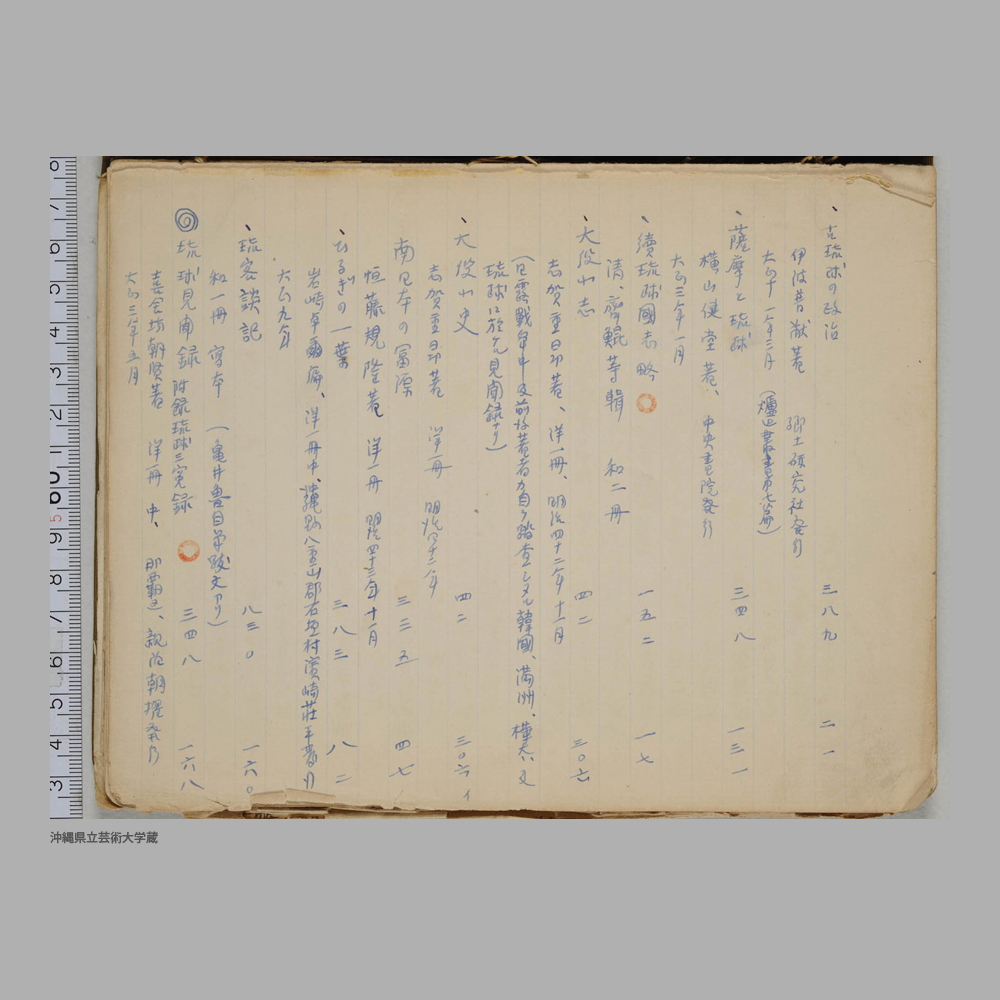 、古琉球の政治 三八九 二一
伊波普猷著 郷土研究社発行
大正十一年三月 (爐辺叢書第七篇)
、薩摩と琉球 三四八 一三一
横山健堂著、 中央書院発行
大正三年一月
、續琉球國志略 一五二 一七
清、齊鯤等輯 和二冊
、大役小志 四二 三〇六
志賀重昂著、洋一冊、明治四十二年十一月
(日露戰争中及前後著者ガ自ク踏査シタル韓國、満洲、樺太、又
琉球ニ於ケル見聞録ナリ)
、大役小史 四二 三〇六 イ
志賀重昂著 洋一冊 明治四十二年
南日本の富源 三三五 四七
恒藤規隆著 洋一冊 明治四十三年十一月
、ひるぎの一葉 三八三 八二
岩崎卓爾編、洋一冊中、沖縄縣八重山郡石垣村濱崎荘三發行
大正九年
、琉客談記 八三〇 一六〇
和一冊 寫本 (亀井魯目弟跋文アリ)
琉球見聞録 附録琉球三寃録 三四八 一六八
喜舎場朝賢著 洋一冊 中、 那覇区、親泊朝擢発行
大正三年五月
沖縄県立芸術大学蔵